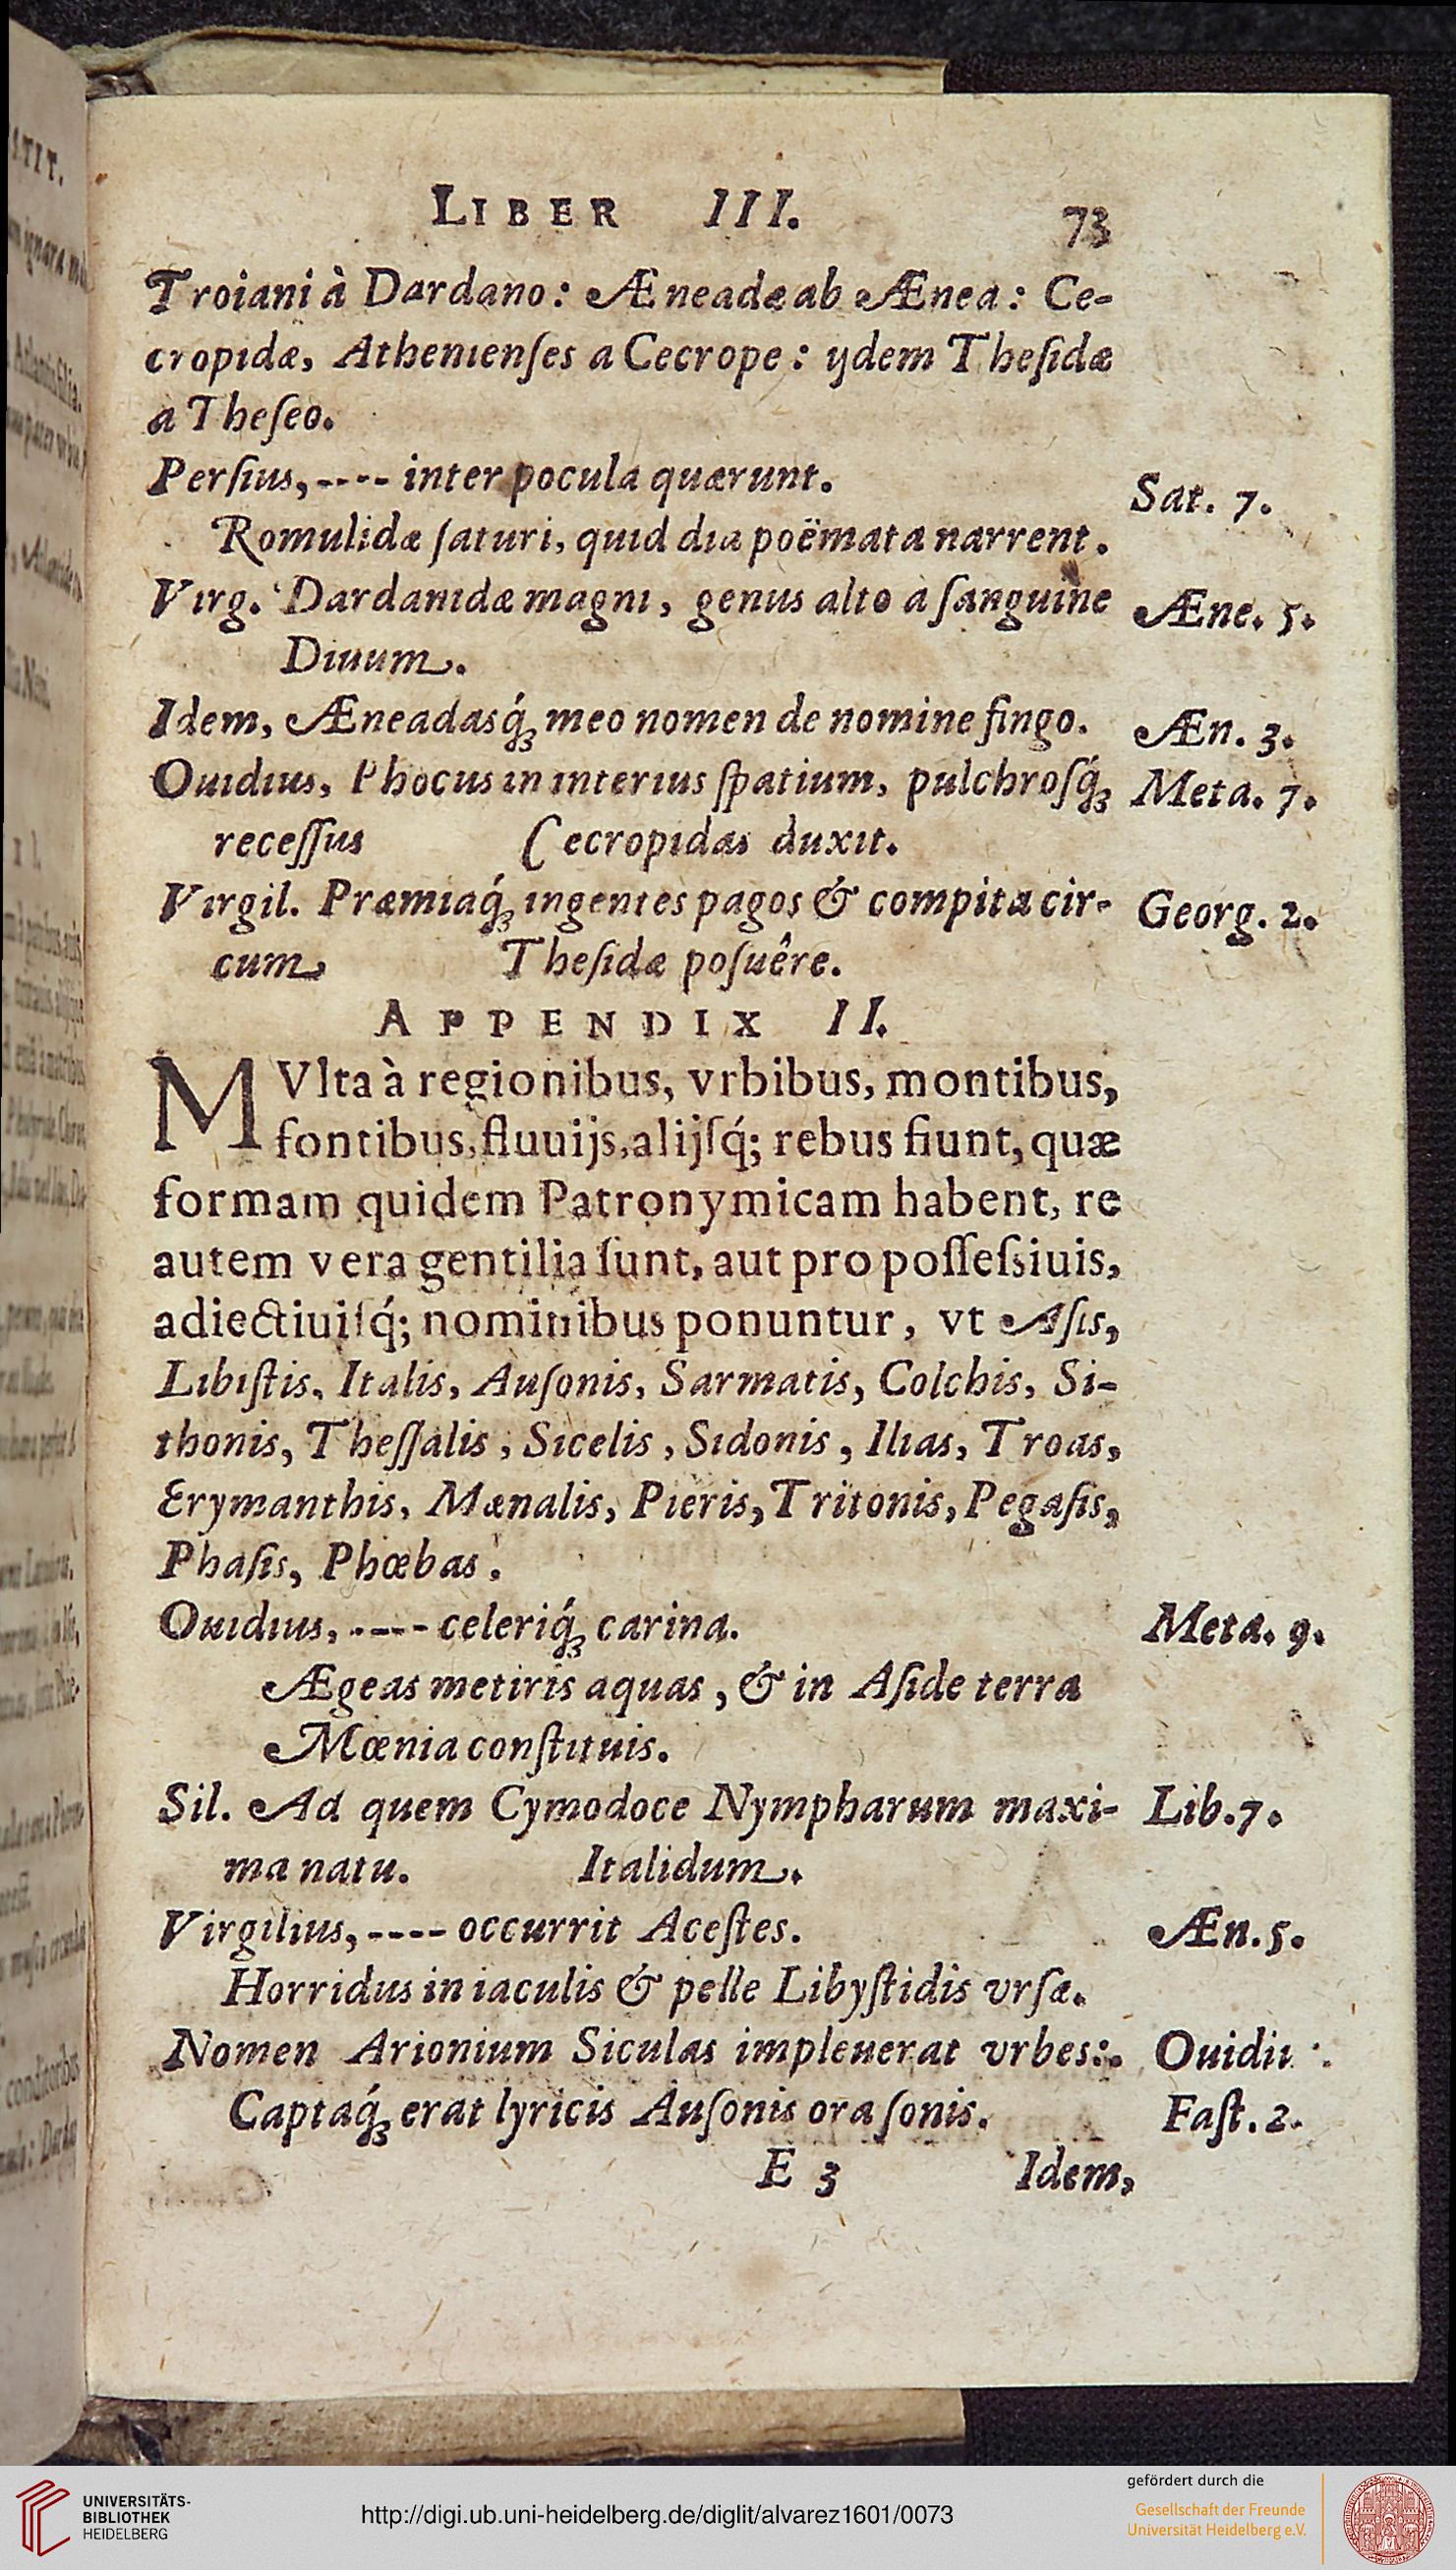 LIBER III. 73
Troiani à Dardano: Æneadæ ab Ænea: Ce-
cropidæ, Athenienſes a Cecrope: ijdem Theſidæ
a Theſeo.
Perſius,---- inter pocula quærunt. Sat. 7.
Romulidæ ſaturi, quid dia poëmata narrent.
Virg. Dardanidæ magni, genus alto a ſanguine Æne. 5.
Diuum.
Idem, Æneadasq́ꝫ meo nomen de nomine fingo. Æn. 3.
Ouidius, Phocus in interius ſpatium, pulchroſq́ꝫ Meta. 7.
receſſus Cecropidas duxit.
Virgil. Præmiaq́ꝫ ingentes pagos & compita cir- Georg. 2.
cum Theſidæ poſuêre.
APPENDIX II.
MVlta à regionibus, vrbibus, montibus,
fontibus, fluuijs, alijſq́; rebus fiunt, quæ
formam quidem Patronymicam habent, re
autem vera gentilia ſunt, aut pro poſſeſsiuis,
adiectiuiſq́; nominibus ponuntur, vt Aſis,
Libiſtis, Italis, Auſonis, Sarmatis, Colchis, Si-
thonis, Theſſalis, Sicelis, Sidonis, Ilias, Troas,
Erymanthis, Mænalis, Pieris, Tritonis, Pegaſis,
Phaſis, Phœbas.
Ouidius, ---- celeriq́ꝫ carina. Meta. 9.
Ægeas metiris aquas, & in Aſide terra
Mœnia conſtituis.
Sil. Ad quem Cymodoce Nympharum maxi- Lib. 7.
ma natu. Italidum.
Virgilius, ---- occurrit Aceſtes. Æn. 5.
Horridus in iaculis & pelle Libyſtidis vrſæ.
Nomen Arionium Siculas impleuerat vrbes: Ouidii
Captaq́ꝫ erat lyricis Auſonis ora ſonis. Faſt. 2.
E 3 Idem,
UNIVERSITÄTS-
BIBLIOTHEK
HEIDELBERG
http://digi.ub.uni-heidelberg.de/diglit/alvarez1601/0073
gefördert durch die
Gesellschaft der Freunde
Universität Heidelberg e.V.